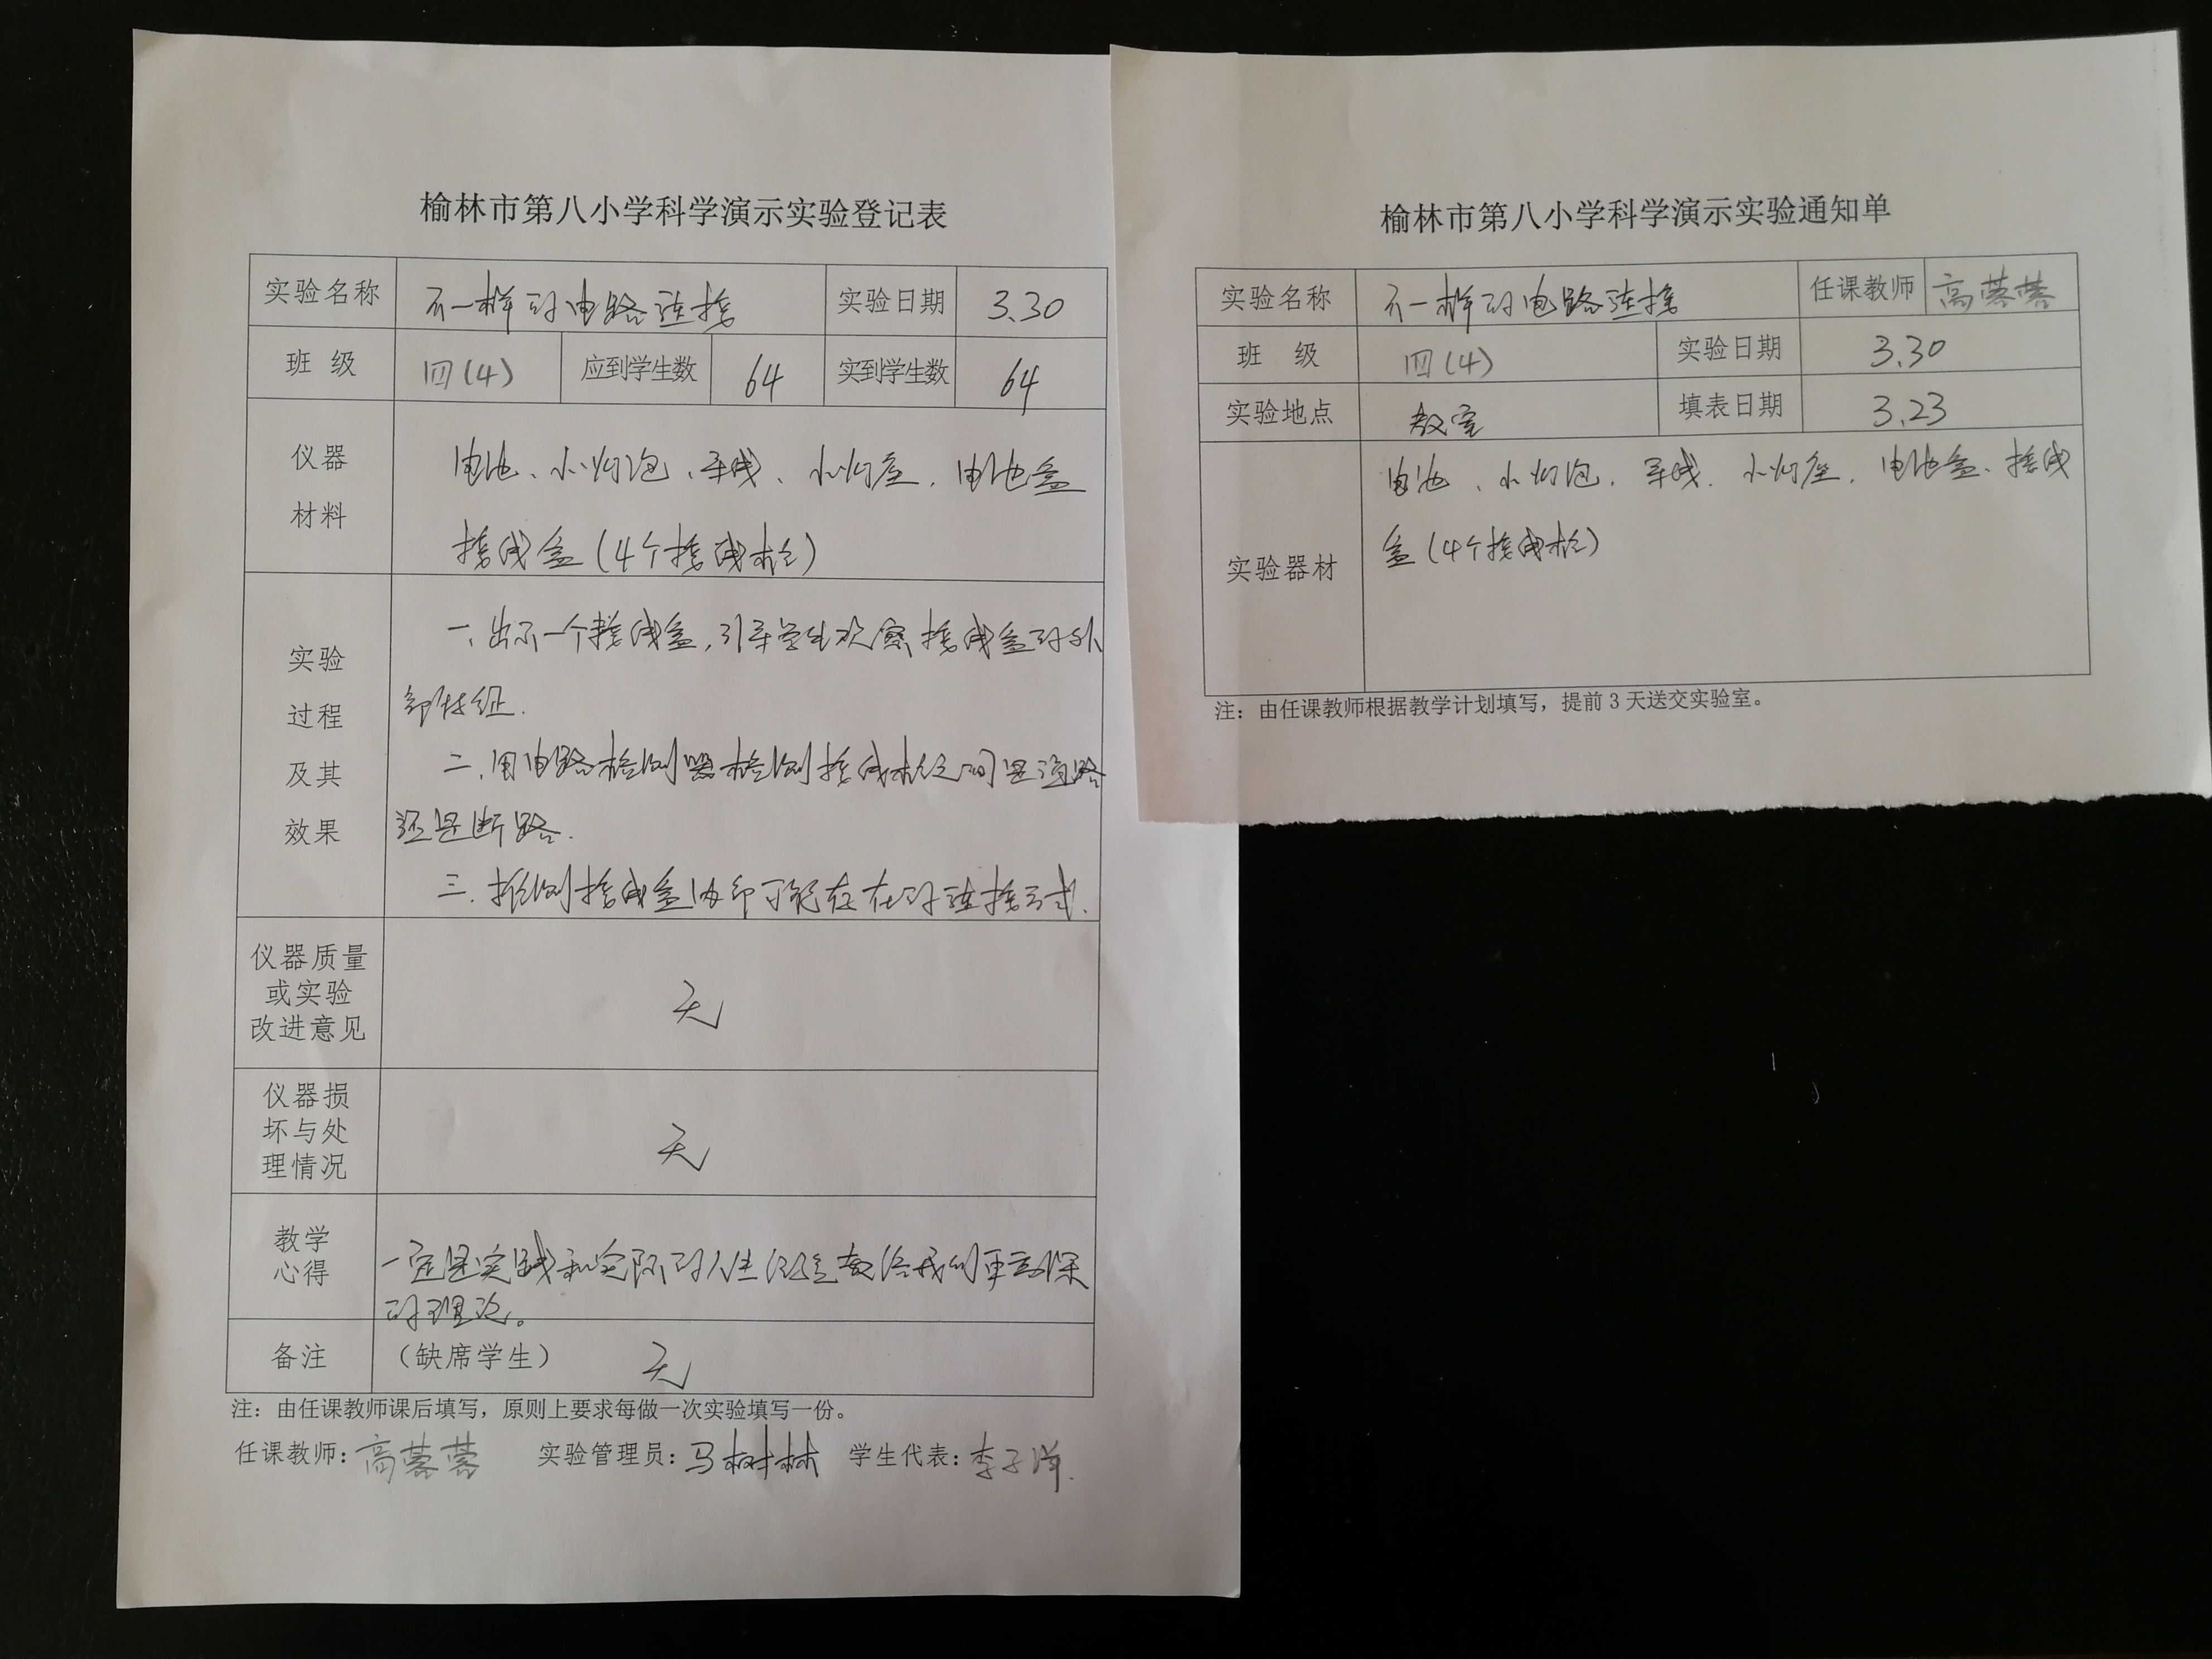 榆林市第八小学科学演示实验登记表
实验名称 不一样的电路连接 实验日期 3.30
班 级 四(4) 应到学生数 64 实到学生数 64
仪器
材料
电池、小灯泡、导线、小灯座、电池盒
接线盒(4个接线柱)
实验
过程
及其
效果
一、出示一个接线盒,引导学生观察接线盒的外
部
二、用电路检测器检测接线柱之间是通路
还是断路.
三、推测接线盒内部可能存在的连接方式.
仪器质量
或实验
改进意见
无
仪器损
坏与处
理情况
无
教学
心得
一定是实践和实际的人生经验教给我们更高深
的理论。
备注 (缺席学生) 无
注:由任课教师课后填写,原则上要求每做一次实验填写一份。
任课教师:高蓉蓉 实验管理员:马树林 学生代表:李子洋
榆林市第八小学科学演示实验通知单
实验名称 不一样的电路连接 任课教师 高蓉蓉
班 级 四(4) 实验日期 3.30
实验地点 教室 填表日期 3.23
实验器材
电池、小灯泡、导线、小灯座、电池盒、接线
盒(4个接线柱)
注:由任课教师根据教学计划填写,提前3天送交实验室。